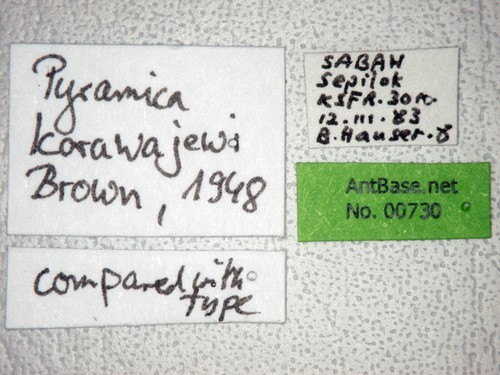 Pyramica
Karawajewi
Brown, 1948
compared with
type
SABAH
Sepilok
KSFR.
12.III.83
B.Hauser.8
AntBase.net
No. 00730